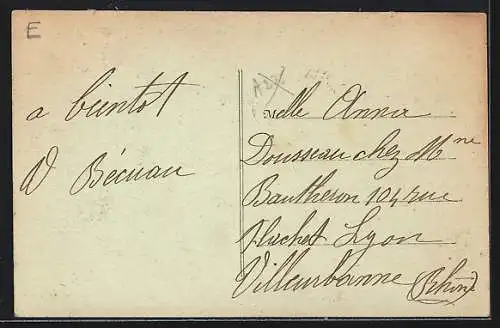 E
a bientot
Melle Anna
Dousseau chez Mme
Bautheron 104 rue
Flachet Lyon
Villeurbanne Rhône